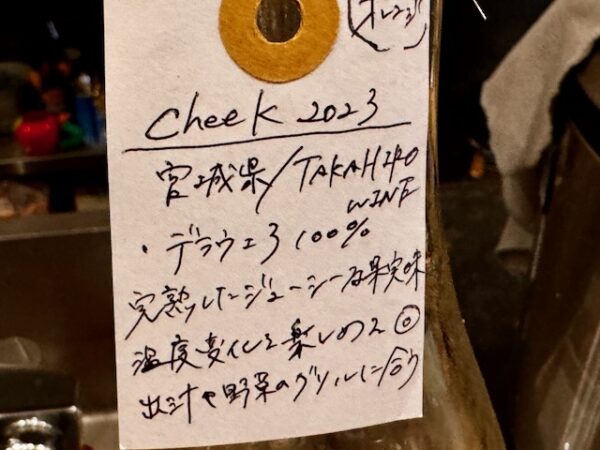 オレンジ
Cheek 2023
宮城県/TAKAHIRO
WINE
・デラウェア 100%
完熟したジューシーな果実味
温度変化を楽しめる◎
出汁や野菜のグリルに合う